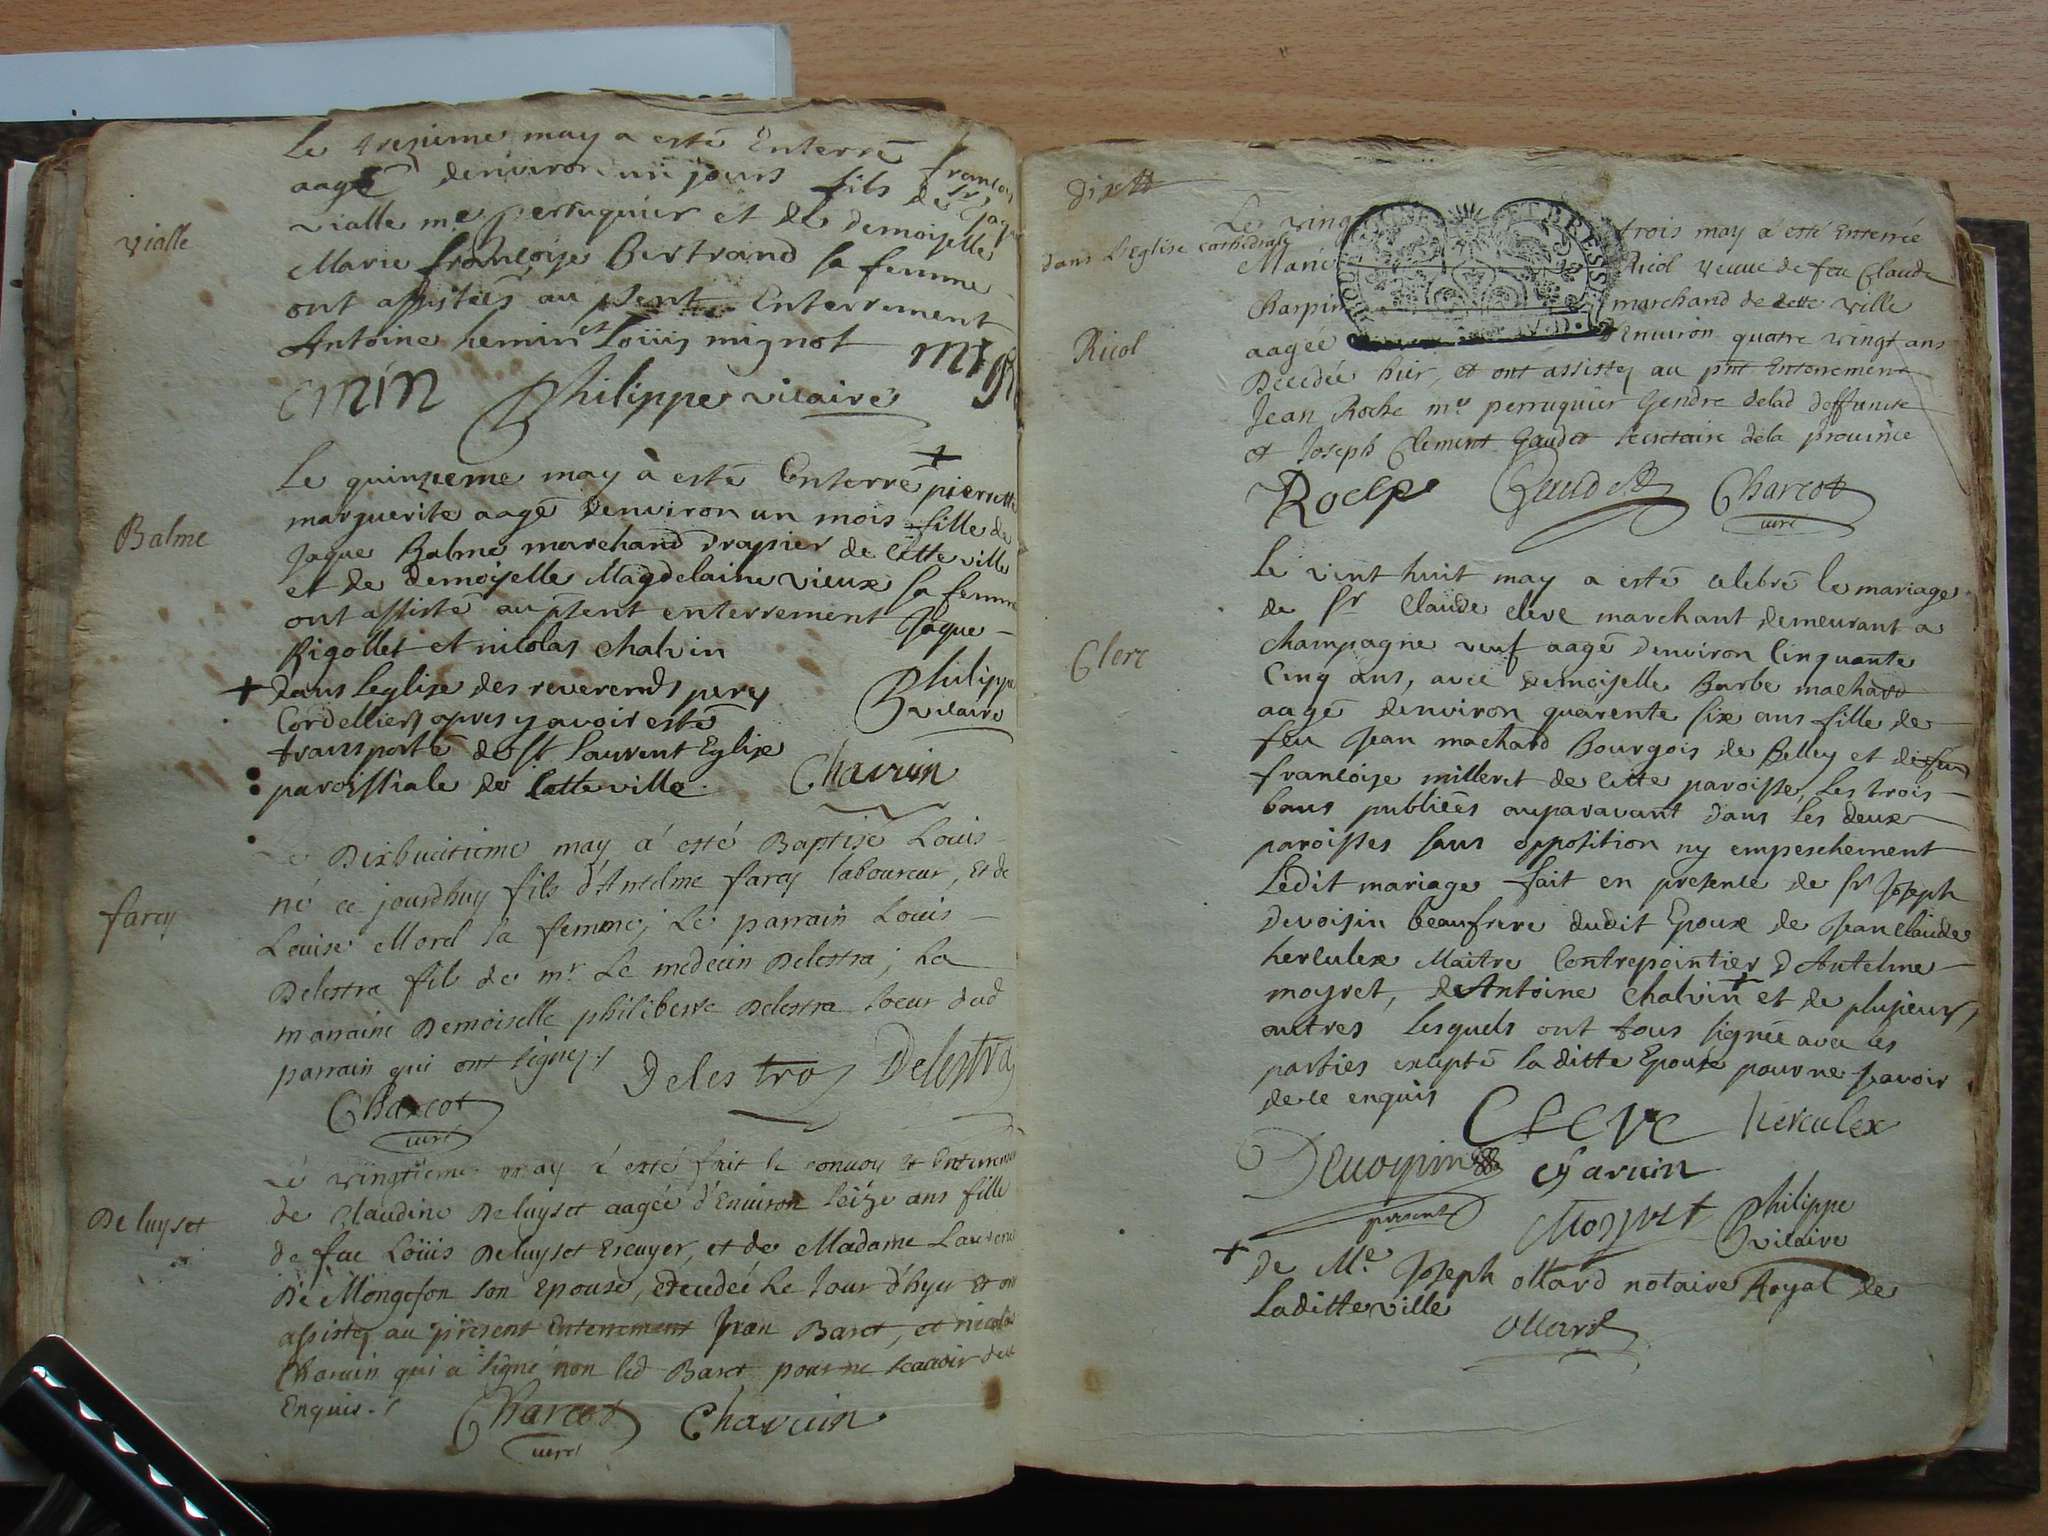 Le tresieme may a esté Enterré francois
aagé denviron un jours fils de Sr Jaque
vialle
vialle me perruquier et de demoiselle
Marie francoise Bertrand sa femme
ont assistés au psent Enterrement
Antoine hemin et Loüis mignot
emin Philippe vicaire mign
Le quinzieme may à esté Enterré + pierrette
marguerite aagé denviron un mois fille de
Balme
Jaque Balme marchand drapier de cette ville
et de demoiselle Magdelaine vieux sa femme
ont assisté au psent enterrement Jaque
Rigollet et nicolas chalvin
+ dans leglise des reverends peres
Cordelliers apres y avoir esté
transporté de st laurent Eglise
paroissiale de cette ville.
Philippe
vicaire
Charvin
Le Dixhuitieme may a esté Baptisé Louis
né ce jourdhuy fils d'Antelme farcy laboureur, Et de
farcy
Louise Morel sa femme; Le parrain Louis
Delestra fils de mr Le medecin Delestra; La
marraine Demoiselle philiberte Delestra soeur dud
parrain qui ont signez./
Delestra Delestra
Charcot
curé
Le vingtieme may a esté fait le convoy Et Enterrement
de Claudine Deluyset aagée d'Environ seize ans fille
Deluyset
de feu Loüis Deluyset Escuyer, et de Madame Laurence
De Mongefon son Epouse, decedée Le Jour d'hyer Et ont
assistez au present Enterrement Jean Baret, et nicolas
Charvin qui a signé non led Baret pour ne scavoir de ce
Enquis./
Charcot
curé
Charvin
dixtt
Le vingt trois may a esté Enterrée
dans L'eglise cathedrale
Marie Ricol veuve de feu Claude
Charpin marchand de cette ville
Ricol
aagée d'Environ quatre vingt ans
Decedée hier, et ont assistez au pnt Enterrement
Jean Roche me perruquier Gendre delad deffuncte
et Joseph Clement Gaudet secretaire dela province
Roche Gaudet Charcot
curé
Le vint huit may a esté celebré le mariage
de Sr Claude clerc marchant demeurant a
Clerc
champagne veuf aagé denviron Cinquante
Cinq ans, avec demoiselle Barbe machard
aagé denviron quarente six ans fille de
feu Jean machard Bourgois de Belley et de feu
francoise milleret de cette paroisse, Les trois
bans publiées auparavant dans Les deux
paroisses sans opposition ny empeschement
Ledit mariage fait en presence de sr Joseph
Devoisin beaufrere dudit Epoux de Jean claude
herculex Maitre Contrepointier d'Antelme
moyret, de Antoine chalvin + et de plusieurs
autres lesquels ont tous signée avec les
parties excepté la ditte Epouse pour ne scavoir
de ce enquis
Clerc herculex
Devoysin
present
Charvin
Moyret
Philippe
vicaire
+ de Me Joseph ollard notaire Royal de
Laditte ville
ollard